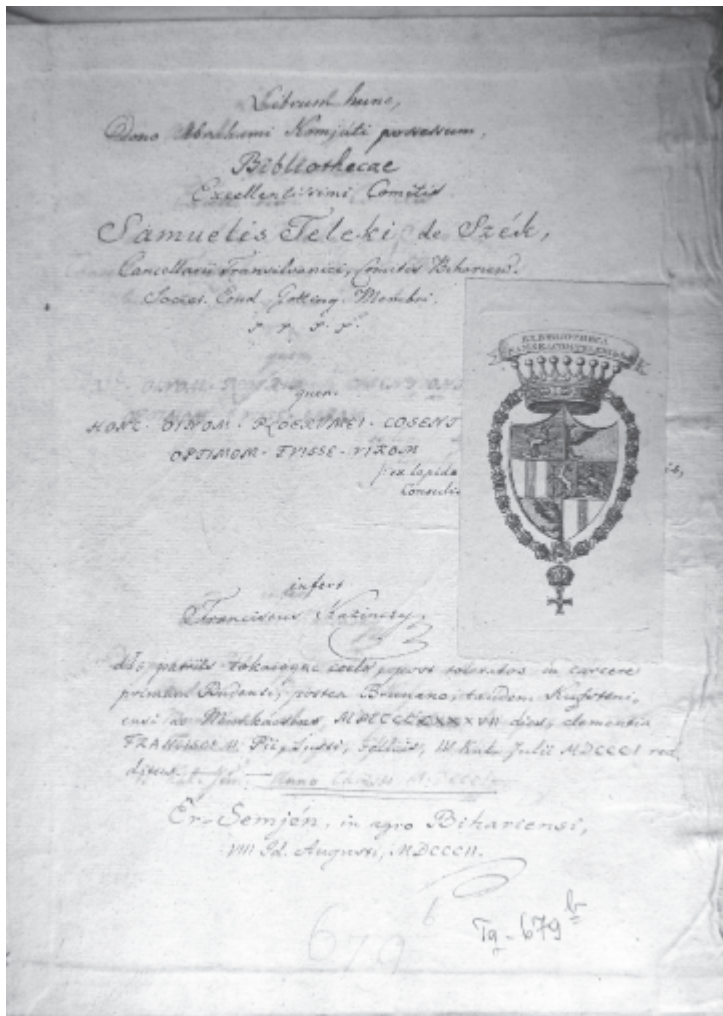 Librum hunc,
Dono Abrahami Komjáti possessum,
Bibliothecae
Excellentissimi Comitis
Samuelis Teleki de Szék,
Cancellarii Transilvanici, Comitis Bihariens.
Societ. Erud. Götting. Membri.
quem
quem
HONC · OINOM · PLOERVMEI · COSENT
OPTIMOM · FVISSE · VIROM
ex lapide
Consulis
infert
Franciscus Kazinczy,
Dis patriis, post toleratos in carcere
primum Budensi, postea Brunano, tandem Kufsteni-
ensi ac Munkácsino, dies, clementia
FRANCISCI II. Pii, Justi, Felicis, Kal. Julii MDCCCI red
ditus.
Ér-Semjén, in agro Bihariensi,
VIII Id. Augusti, MDCCCII.
BIBLIOTHECA
679
b
Tq-679 b